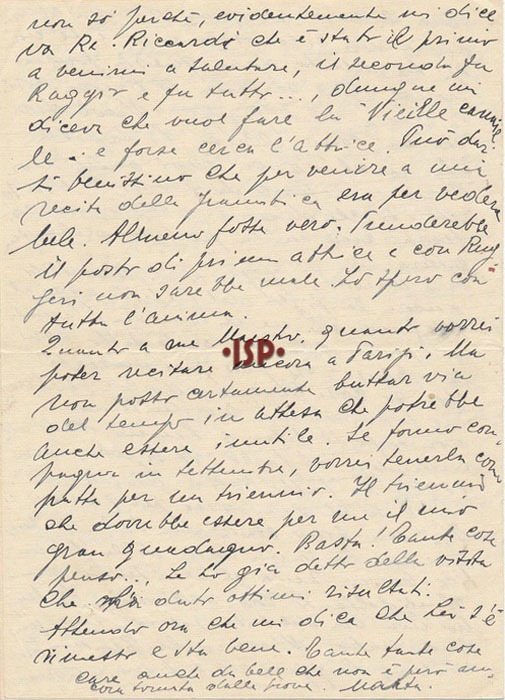 non so perché, evidentemente mi dice
va Re-Riccardi che è stato il primo
a venirmi a salutare, il secondo fu
Raggio e fu tutto..., dunque mi
diceva che vuol fare la Vieille canail
le.. e forse cerca l'attrice. Può dar
si benissimo che per venire a una
recita della Gramatica era per veder
bele. Almeno fosse vero. Prenderebbe
il posto di prima attrice e con Rug
geri non sarebbe male. Lo spero con
tutta l'anima.
Quanto a me Maestro, quanto vorrei
poter recitare ancora a Parigi. Ma
non posso certamente buttar via
del tempo in attesa che potrebbe
anche essere inutile. Se formo com
pagnia in Settembre, vorrei tenerla com
patta per un triennio. Il triennio
che dovrebbe essere per me il mio
gran guadagno. Basta! Tante cose
penso... Le ho già detto della visita
che ha dato ottimi risultati.
Attendo ora che mi dica che Lei s'è
rimesso e sta bene. Tante tante cose
care anche da bele che non è però an
cora tornata dalle prove. Marta
•ISP•